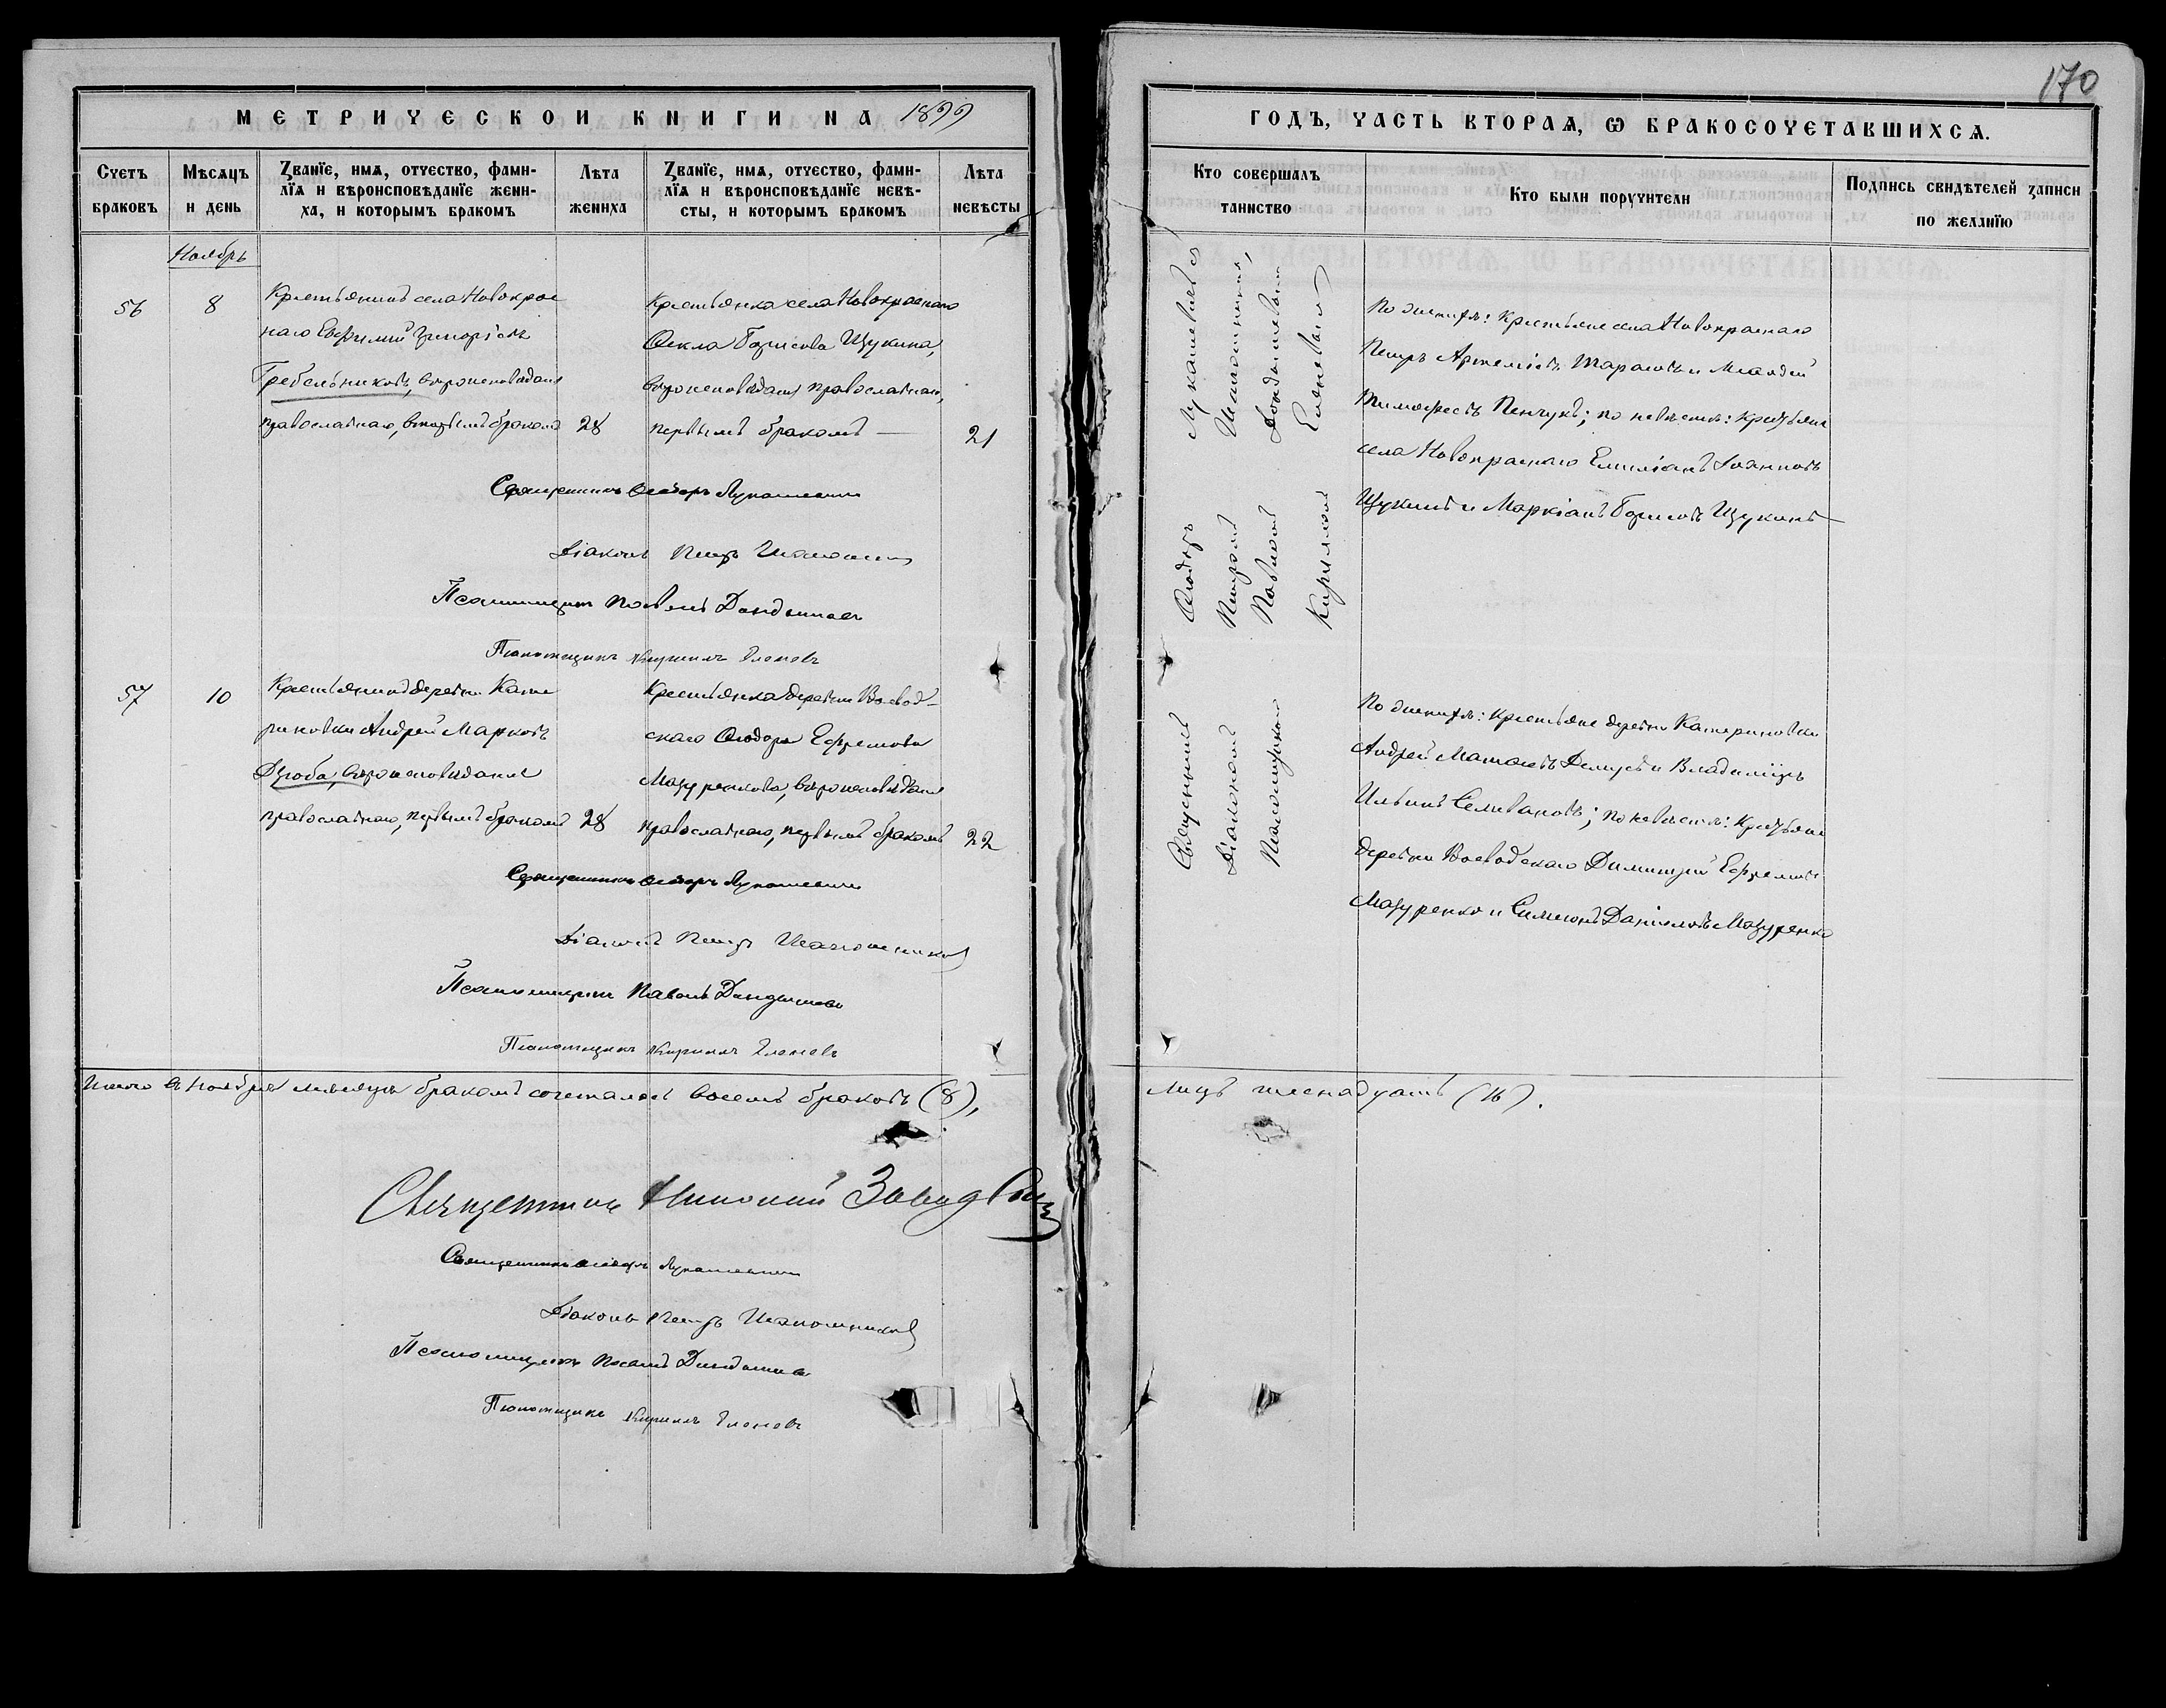 170
МЕТРИЧЕСКОЙ КНИГИ НА 1899
ГОДЪ, ЧАСТЬ ВТОРАѦ, Ѡ БРАКОСОЧЕТАВШИХСѦ.
Счетъ браковъ
Мѣсѧцъ и день
Званїе, имѧ, отчество, фами-
лїѧ и вѣроисповѣданїе жени-
ха, и которымъ бракомъ
Лѣта жениха
Званїе, имѧ, отчество, фами-
лїѧ и вѣроисповѣданїе невѣ-
сты, и которымъ бракомъ
Лѣта невѣсты
Кто совершалъ таинство
Кто были поручители
Подпись свидѣтелей записи по желанїю
Ноябрь
56
8
Крестьянинъ села Новокрас
наго Евфимій Григоріевъ
Гребенниковъ, вѣроисповѣданія
православнаго, вторымъ бракомъ
28
Крестьянка села Новокраснаго
Ѳекла Борисова Щукина,
вѣроисповѣданія православнаго,
первымъ бракомъ —
21
По женихѣ: крестьяне села Новокраснаго
Петръ Артеміевъ Тарасовъ и
Тимофеевъ Пенчукъ; по невѣстѣ: крестьяне
села Новокраснаго Емиліанъ Іоанновъ
Щукинъ и Маркіанъ Борисовъ Щукинъ —
Священникъ Ѳеодоръ Лукашевичъ
Діаконъ Петръ Шапошников
Псаломщикъ Павелъ Дондышевъ
Псаломщикъ Кириллъ Еленевъ
57
10
Крестьянинъ деревни Кате
риновки Андрей Марковъ
Дзюба, вѣроисповѣданія
православнаго, первымъ бракомъ
28
Крестьянка деревни Воевод-
скаго Ѳеодора Ефремова
Мазуренкова, вѣроисповѣданія
православнаго, первымъ бракомъ
22
Священникъ
Діакономъ
Псаломщиками
По женихѣ: крестьяне деревни Катериновки
Андрей и Владиміръ
Ильинъ Селивановъ; по невѣстѣ: крестьяне
деревни Воеводскаго Димитрій Ефремовъ
Мазуренко и Симеонъ Даніиловъ Мазуренко
Священникъ Ѳеодоръ Лукашевичъ
Діаконъ Петръ Шапошников
Псаломщикъ Павелъ Дондышевъ
Псаломщикъ Кириллъ Еленевъ
Итого въ ноябрѣ мѣсяцѣ бракомъ сочеталось восемь браковъ (8),
лицъ шеснадцать (16).
Священникъ Николай
Священникъ Ѳеодоръ Лукашевичъ
Діаконъ Петръ Шапошников
Псаломщикъ Павелъ Дондышевъ
Псаломщикъ Кириллъ Еленевъ